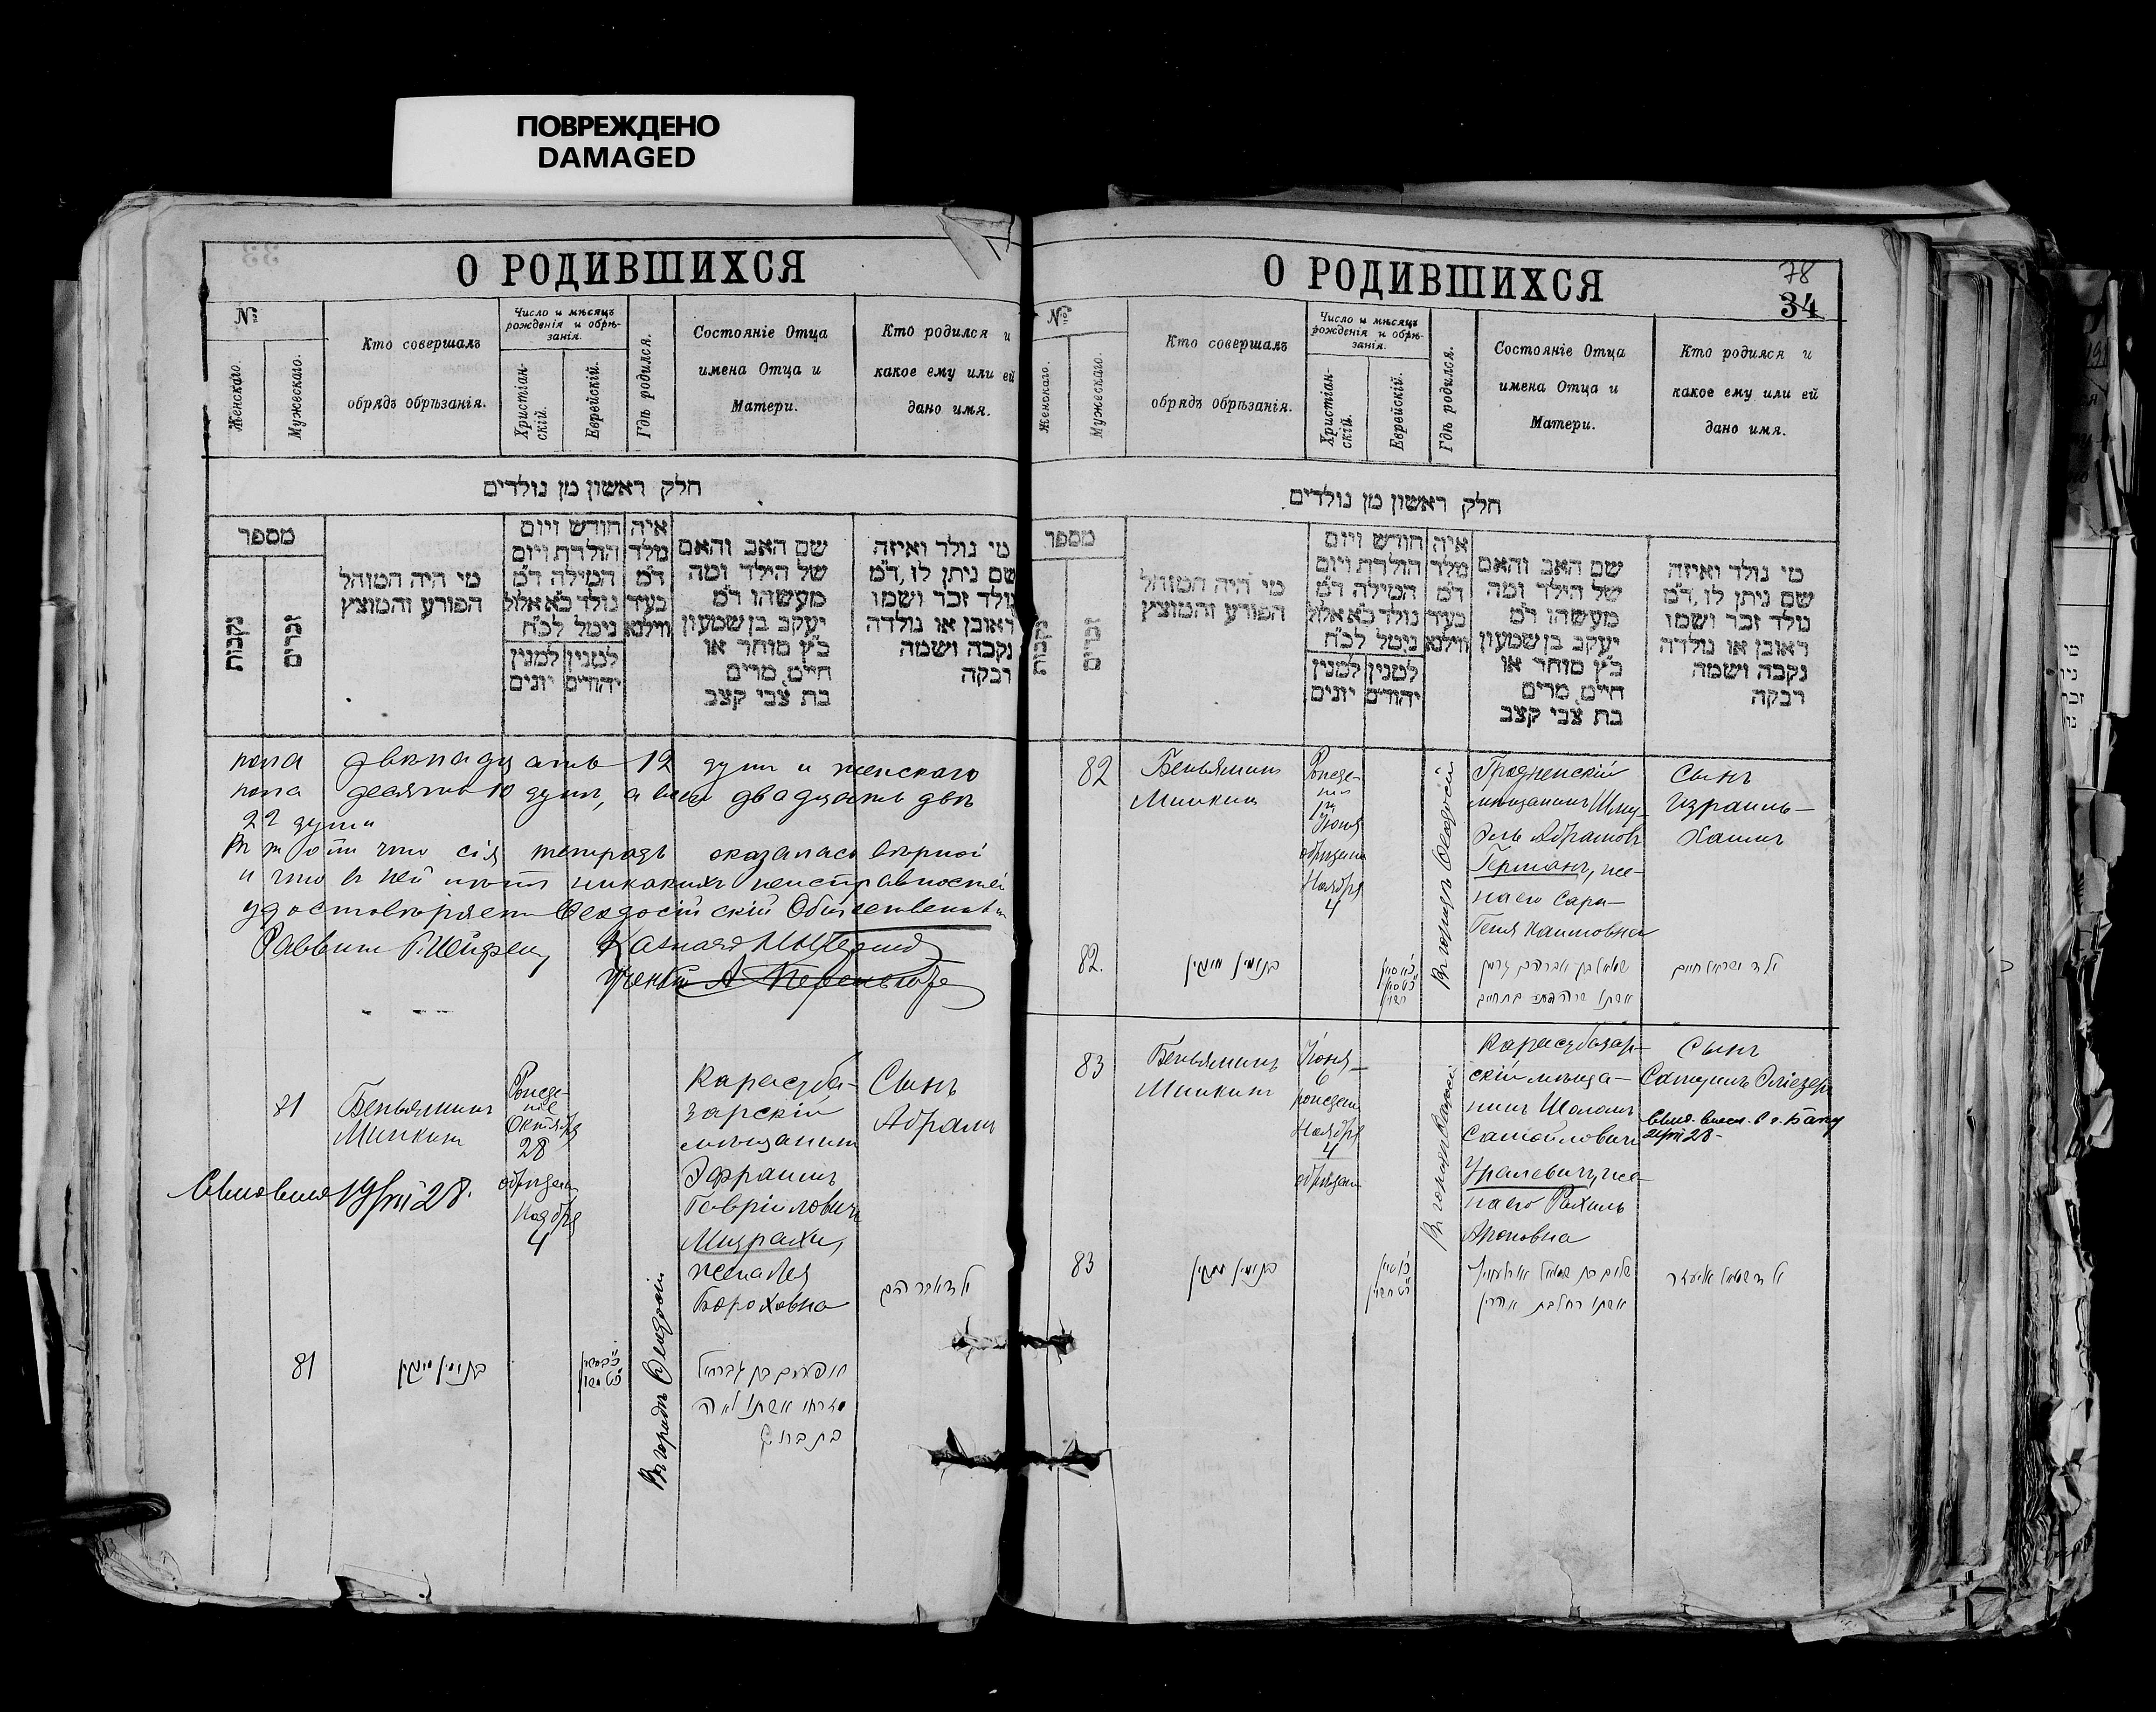 ПОВРЕЖДЕНО
DAMAGED
О РОДИВШИХСЯ
№
Женскаго.
Мужескаго.
Кто совершалъ
обрядъ обрѣзанія.
Число и мѣсяцъ
рожденія и обрѣ-
занія.
Христіан-
скій.
Еврейскій.
Гдѣ родился.
Состояніе Отца
имена Отца и
Матери.
Кто родился и
какое ему или ей
дано имя.
חלק ראשון מן נולדים
מספר
נקבות
זכרים
מי היה המוהל
הפורע והמוצץ
חודש ויום
הולדת ויום
המילה ד״מ
נולד כ״א אלול
נימל לכ״ח
למנין
יהודים
למנין
יונים
איה
מלד
ד״מ
בעיר
ווילנא
שם האב והאם
של הילד ומה
מעשהו ד״מ
יעקב בן שמעון
כ״ץ סוחר או
חיים, מרים
בת צבי קצב
מי נולד ואיזה
שם ניתן לו, ד״מ
נולד זכר ושמו
ראובן או נולדה
נקבה ושמה
רבקה
пола двѣнадцать 12 душъ и женскаго
пола десять 10 душъ, а всего двадцать двѣ
22 души
Въ томъ что сія тетрадь оказалась вѣрной
и что въ ней нѣтъ никакихъ неисправностей
удостовѣряетъ Ѳеодосійскій Общественный
Раввинъ
81
Беньяминъ
Минкинъ
Рожде-
ніе
Октября
28
обрѣзан
Ноября
4
Въ городѣ Ѳеодосіи
Карасуба-
зарскій
мѣщанинъ
Эфраимъ
Гавріиловичъ
Мизрахи,
жена Лея
Бороховна
Сынъ
Абрамъ
28.
81
בנימין מינקין
מזרחי אשתו לאה
בת ברוך
О РОДИВШИХСЯ
78
34
№
Женскаго.
Мужескаго.
Кто совершалъ
обрядъ обрѣзанія.
Число и мѣсяцъ
рожденія и обрѣ-
занія.
Христіан-
скій.
Еврейскій.
Гдѣ родился.
Состояніе Отца
имена Отца и
Матери.
Кто родился и
какое ему или ей
дано имя.
חלק ראשון מן נולדים
מספר
נקבות
זכרים
מי היה המוהל
הפורע והמוצץ
חודש ויום
הולדת ויום
המילה ד״מ
נולד כ״א אלול
נימל לכ״ח
למנין
יהודים
למנין
יונים
איה
מלד
ד״מ
בעיר
ווילנא
שם האב והאם
של הילד ומה
מעשהו ד״מ
יעקב בן שמעון
כ״ץ סוחר או
חיים, מרים
בת צבי קצב
מי נולד ואיזה
שם ניתן לו, ד״מ
נולד זכר ושמו
ראובן או נולדה
נקבה ושמה
רבקה
82
Беньяминъ
Минкинъ
Рожде-
ніе
Іюня
обрѣзаніе
Ноября
4
Въ городѣ Ѳеодосіи
Гродненскій
мѣщанинъ Шму-
эль Абрамовъ
Германъ, же-
на его Сара-
Геня Хаимовна
Сынъ
Израиль-
Хаимъ
82.
בנימין מינקין
ילד ישראל חיים
83
Беньяминъ
Минкинъ
Іюня
6
рожден
Ноября
4
обрѣзан
Въ городѣ Ѳеодосіи
Карасубазар-
скій мѣща-
нинъ Шоломъ
Самойловичъ
же-
на его Рахиль
Ароновна
Сынъ
Самуилъ Эліезеръ
83
בנימין מינקין
אשתו רחל בת אהרן
ילד שמואל אליעזר